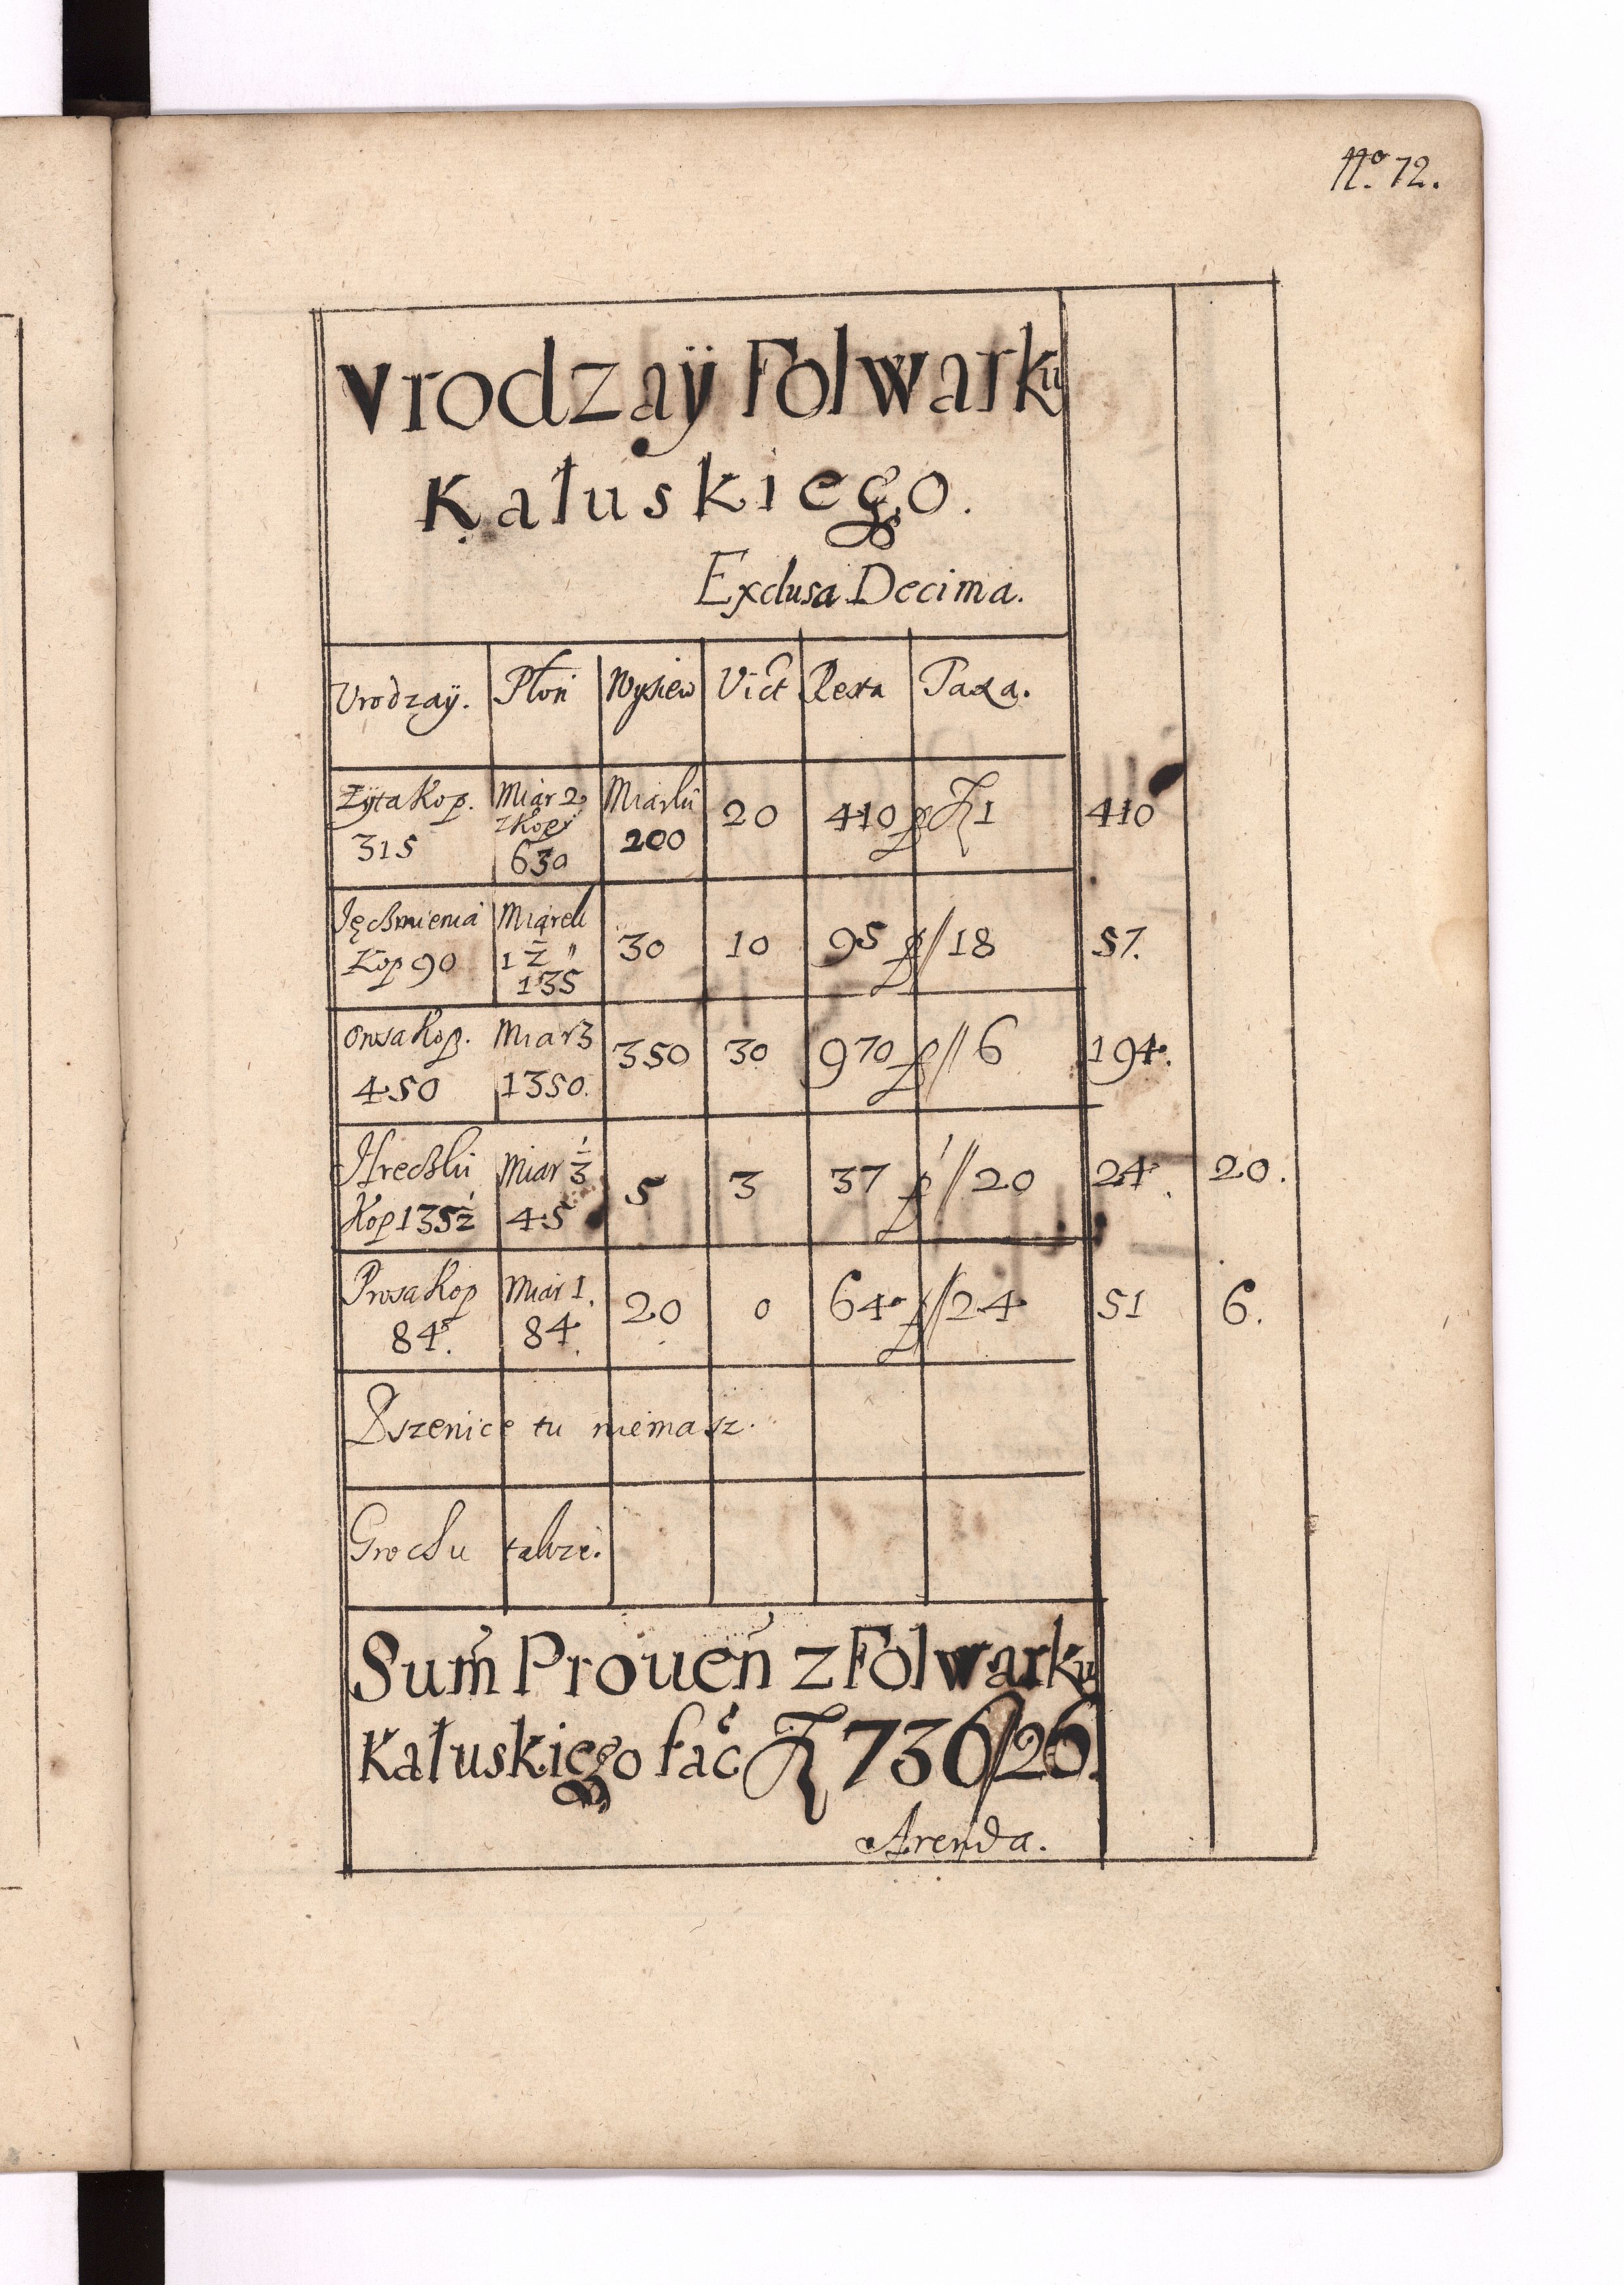 No. 72.
Vrodzaÿ Folwarku
Kałuskiego.
Exclusa Decima.
Vrodzaÿ. Płon Wysiew Vict Resta Taxa.
Zyta Kop. 315 Miar 2 z Kopÿ 630 Miarki 200 20 410 p zł 1 410
Jęchmienia Kop 90 Miarek 1 ½ 135 30 10 95 p // 18 57.
Owsa Kop. 450 Miar 3 1350. 350 30 970 p // 6 194.
Hreczki Kop 135 ½ Miar ⅓ 45 5 3 37 p // 20 24. 20.
Prosa Kop 84. Miar 1. 84. 20 0 64 p // 24 51 6.
Pszenice tu niemasz.
Grochu takze.
Sum̃ Proueñ z Folwarku
Kałuskiego fac̃ zł 736/26.
Arenda.